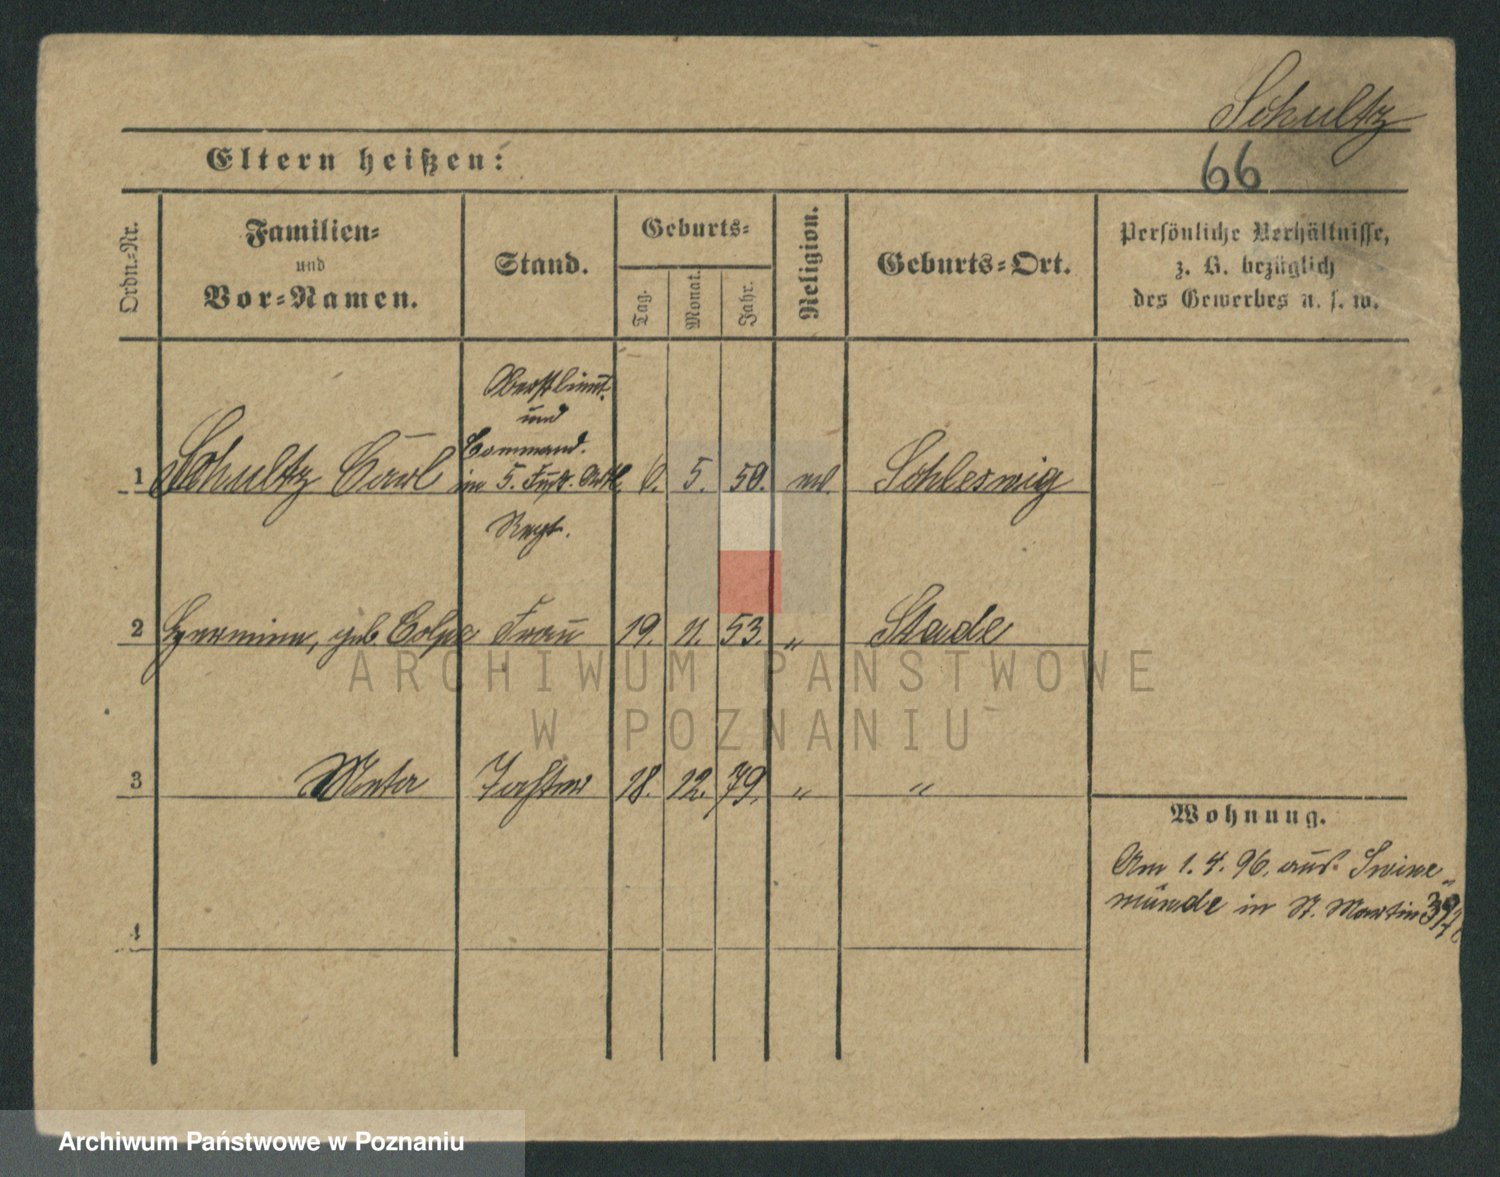 Schultz
Eltern heißen:
66
Ordn.-Nr.
Familien-
und
Vor-Namen.
Stand.
Geburts-
Tag.
Monat.
Jahr.
Religion.
Geburts-Ort.
Persönliche Verhältnisse,
z. B. bezüglich
des Gewerbes u. s. w.
Oberstlieut.
und
Command.
1 Schultz Carl im 5. Fuß. Artl. 6. 5. 50. ev. Schleswig
Regt.
2 Hermine, geb. Frau 19. 11. 53. " Stade
3 Meta Tochter 18. 12. 79. " "
4
Wohnung.
Am 1. 4. 96. aus Swine-
münde in St. Martin
ARCHIWUM PAŃSTWOWE
W POZNANIU
Archiwum Państwowe w Poznaniu